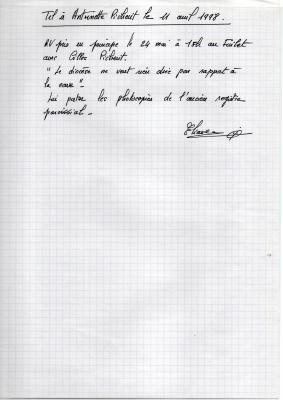 Tel à Antoinette Richard le 11 avril 1998.
RV pris en principe le 24 mai à 15h au
avec Gilles Richard.
"Le diocèse ne veut rien dire par rapport à
la cure".
Lui porter les photocopies de l'ancien registre
paroissial.